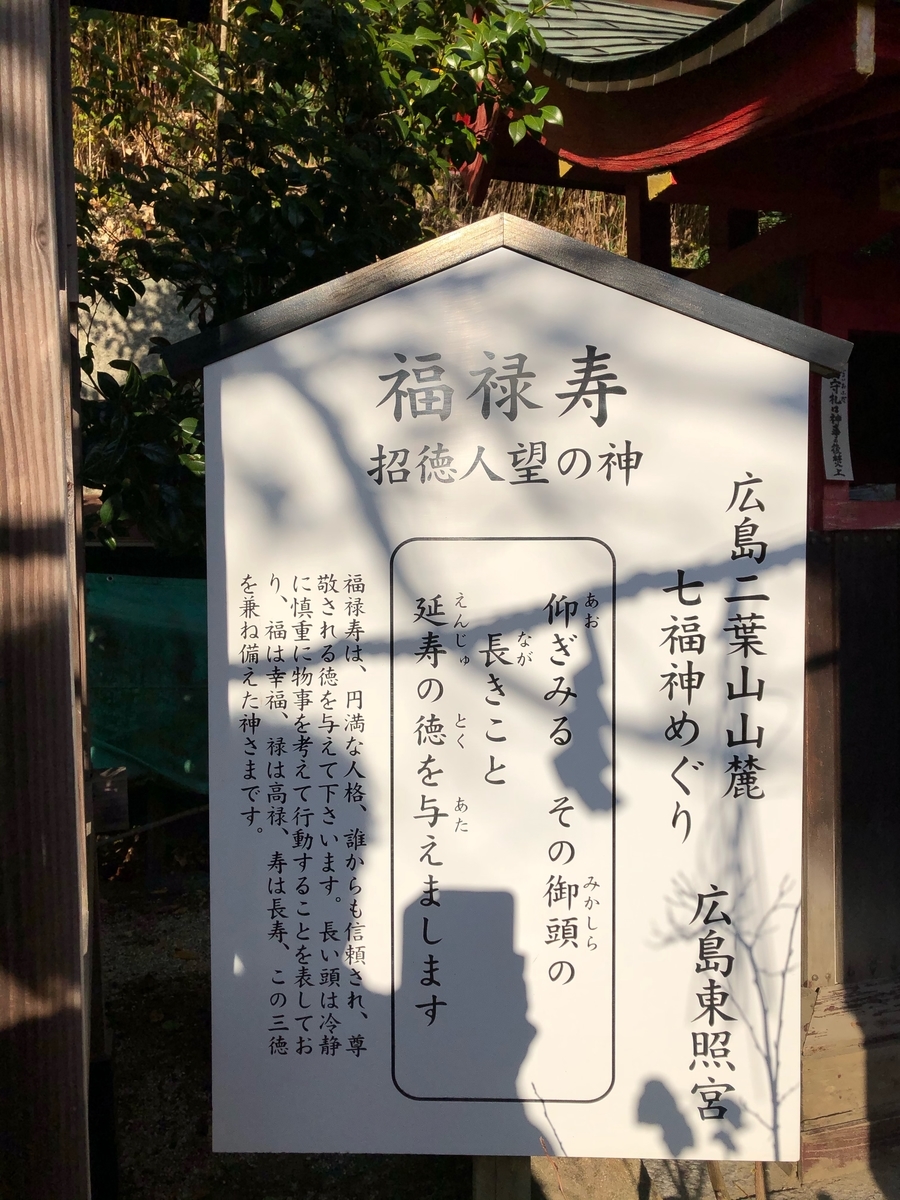 福禄寿
招徳人望の神
広島二葉山山麓
七福神めぐり
広島東照宮
仰ぎみる その御頭の
あお みかしら
長きこと
なが
延寿の徳を与えまします
えんじゅ とく あた
福禄寿は、円満な人格、誰からも信頼され、尊
敬される徳を与えて下さいます。長い頭は冷静
に慎重に物事を考えて行動することを表してお
り、福は幸福、禄は高禄、寿は長寿、この三徳
を兼ね備えた神さまです。